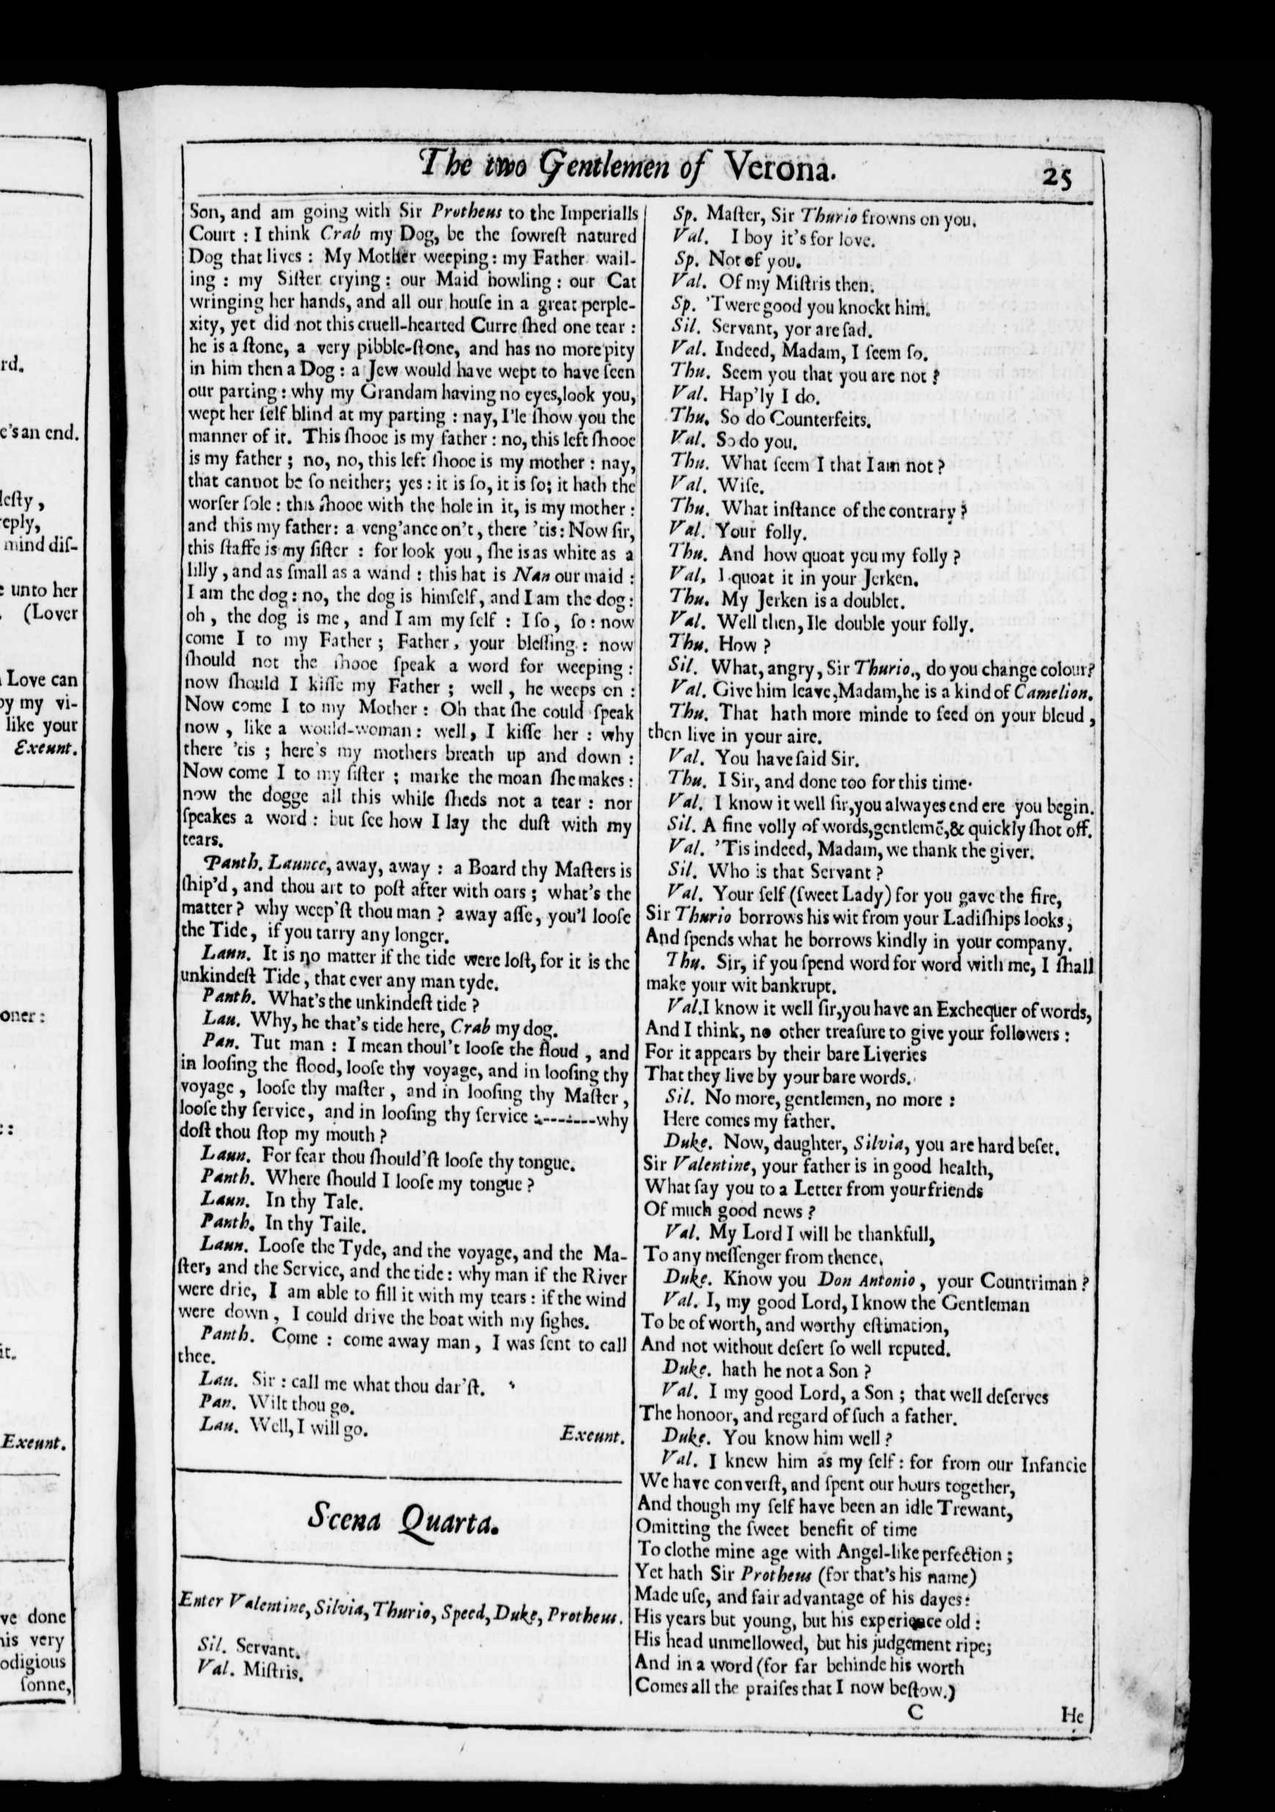 rd.
e's an end.
leſty,
reply,
mind diſ-
unto her
(Lover
Love can
by my vi-
like your
Exeunt.
oner:
it.
Exeunt.
ve done
his very
odigious
ſonne,
The two Gentlemen of Verona.
25
Son, and am going with Sir Protheus to the Imperialls
Court : I think Crab my Dog, be the ſowreſt natured
Dog that lives : My Mother weeping: my Father wail-
ing : my Siſter crying : our Maid howling : our Cat
wringing her hands, and all our houſe in a great perple-
xity, yet did not this cruell-hearted Curre ſhed one tear :
he is a ſtone, a very pibble-ſtone, and has no more pity
in him then a Dog : a Jew would have wept to have ſeen
our parting : why my Grandam having no eyes, look you,
wept her ſelf blind at my parting : nay, I'le ſhow you the
manner of it. This ſhooe is my father : no, this left ſhooe
is my father ; no, no, this left ſhooe is my mother : nay,
that cannot be ſo neither; yes : it is ſo, it is ſo; it hath the
worſer ſole : this ſhooe with the hole in it, is my mother :
and this my father: a veng'ance on't, there 'tis : Now ſir,
this ſtaffe is my ſiſter : for look you, ſhe is as white as a
lilly, and as ſmall as a wand : this hat is Nan our maid :
I am the dog: no, the dog is himſelf, and I am the dog:
oh, the dog is me, and I am my ſelf : I ſo, ſo : now
come I to my Father ; Father, your bleſſing : now
ſhould not the ſhooe ſpeak a word for weeping :
now ſhould I kiſſe my Father ; well, he weeps on :
Now come I to my Mother : Oh that ſhe could ſpeak
now, like a would-woman: well, I kiſſe her : why
there 'tis ; here's my mothers breath up and down :
Now come I to my ſiſter ; marke the moan ſhe makes :
now the dogge all this while ſheds not a tear : nor
ſpeakes a word : but ſee how I lay the duſt with my
tears.
Panth. Launce, away, away : a Board thy Maſters is
ſhip'd, and thou art to poſt after with oars ; what's the
matter? why weep'ſt thou man? away aſſe, you'l looſe
the Tide, if you tarry any longer.
Laun. It is no matter if the tide were loſt, for it is the
unkindeſt Tide, that ever any man tyde.
Panth. What's the unkindeſt tide ?
Lau. Why, he that's tide here, Crab my dog.
Pan. Tut man : I mean thoul't looſe the floud, and
in looſing the flood, looſe thy voyage, and in looſing thy
voyage, looſe thy maſter, and in looſing thy Maſter,
looſe thy ſervice, and in looſing thy ſervice :-----:---why
doſt thou ſtop my mouth ?
Laun. For fear thou ſhould'ſt looſe thy tongue.
Panth. Where ſhould I looſe my tongue ?
Laun. In thy Tale.
Panth. In thy Taile.
Laun. Looſe the Tyde, and the voyage, and the Ma-
ſter, and the Service, and the tide : why man if the River
were drie, I am able to fill it with my tears : if the wind
were down, I could drive the boat with my ſighes.
Panth. Come : come away man, I was ſent to call
thee.
Lau. Sir : call me what thou dar'ſt.
Pan. Wilt thou go.
Lau. Well, I will go. Exeunt.
Scena Quarta.
Enter Valentine, Silvia, Thurio, Speed, Duke, Protheus.
Sil. Servant.
Val. Miſtris.
Sp. Maſter, Sir Thurio frowns on you.
Val. I boy it's for love.
Sp. Not of you.
Val. Of my Miſtris then.
Sp. 'Twere good you knockt him.
Sil. Servant, yor are ſad.
Val. Indeed, Madam, I ſeem ſo.
Thu. Seem you that you are not ?
Val. Hap'ly I do.
Thu. So do Counterfeits.
Val. So do you.
Thu. What ſeem I that I am not ?
Val. Wiſe.
Thu. What inſtance of the contrary ?
Val. Your folly.
Thu. And how quoat you my folly ?
Val, I quoat it in your Jerken.
Thu. My Jerken is a doublet.
Val. Well then, Ile double your folly.
Thu. How ?
Sil. What, angry, Sir Thurio., do you change colour?
Val. Give him leave, Madam, he is a kind of Camelion.
Thu. That hath more minde to feed on your bloud,
then live in your aire.
Val. You have ſaid Sir.
Thu. I Sir, and done too for this time.
Val. I know it well ſir, you alwayes end ere you begin.
Sil. A fine volly of words, gentlemē, & quickly ſhot off.
Val. 'Tis indeed, Madam, we thank the giver.
Sil. Who is that Servant ?
Val. Your ſelf (ſweet Lady) for you gave the fire,
Sir Thurio borrows his wit from your Ladiſhips looks,
And ſpends what he borrows kindly in your company.
Thu. Sir, if you ſpend word for word with me, I ſhall
make your wit bankrupt.
Val. I know it well ſir, you have an Exchequer of words,
And I think, no other treaſure to give your followers :
For it appears by their bare Liveries
That they live by your bare words.
Sil. No more, gentlemen, no more :
Here comes my father.
Duke. Now, daughter, Silvia, you are hard beſet.
Sir Valentine, your father is in good health,
What ſay you to a Letter from your friends
Of much good news ?
Val. My Lord I will be thankfull,
To any meſſenger from thence.
Duke. Know you Don Antonio, your Countriman ?
Val. I, my good Lord, I know the Gentleman
To be of worth, and worthy eſtimation,
And not without deſert ſo well reputed.
Duke. hath he not a Son ?
Val. I my good Lord, a Son ; that well deſerves
The honoor, and regard of ſuch a father.
Duke. You know him well ?
Val. I knew him as my ſelf : for from our Infancie
We have converſt, and ſpent our hours together,
And though my ſelf have been an idle Trewant,
Omitting the ſweet benefit of time
To clothe mine age with Angel-like perfection ;
Yet hath Sir Protheus (for that's his name)
Made uſe, and fair advantage of his dayes :
His years but young, but his experience old :
His head unmellowed, but his judgement ripe;
And in a word (for far behinde his worth
Comes all the praiſes that I now beſtow.)
C
He